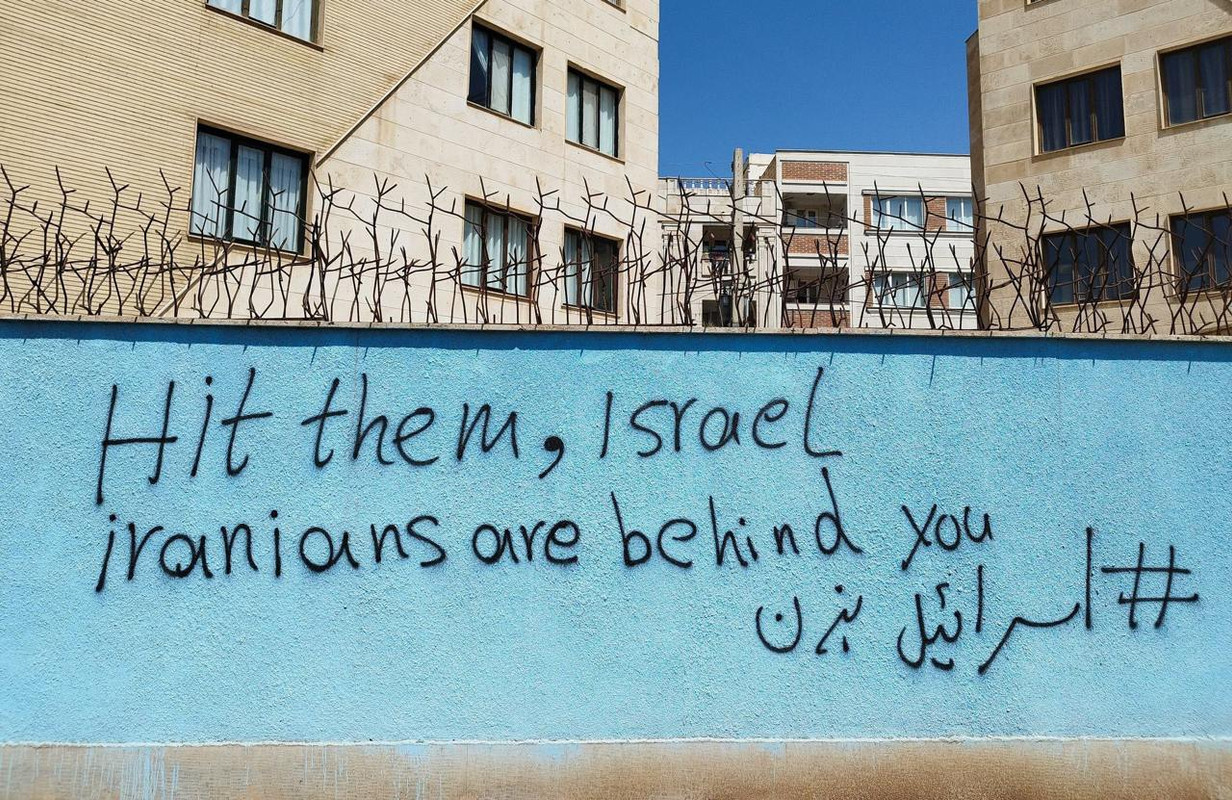 Hit them, Israel
iranians are behind you
#اسرائیل بزن